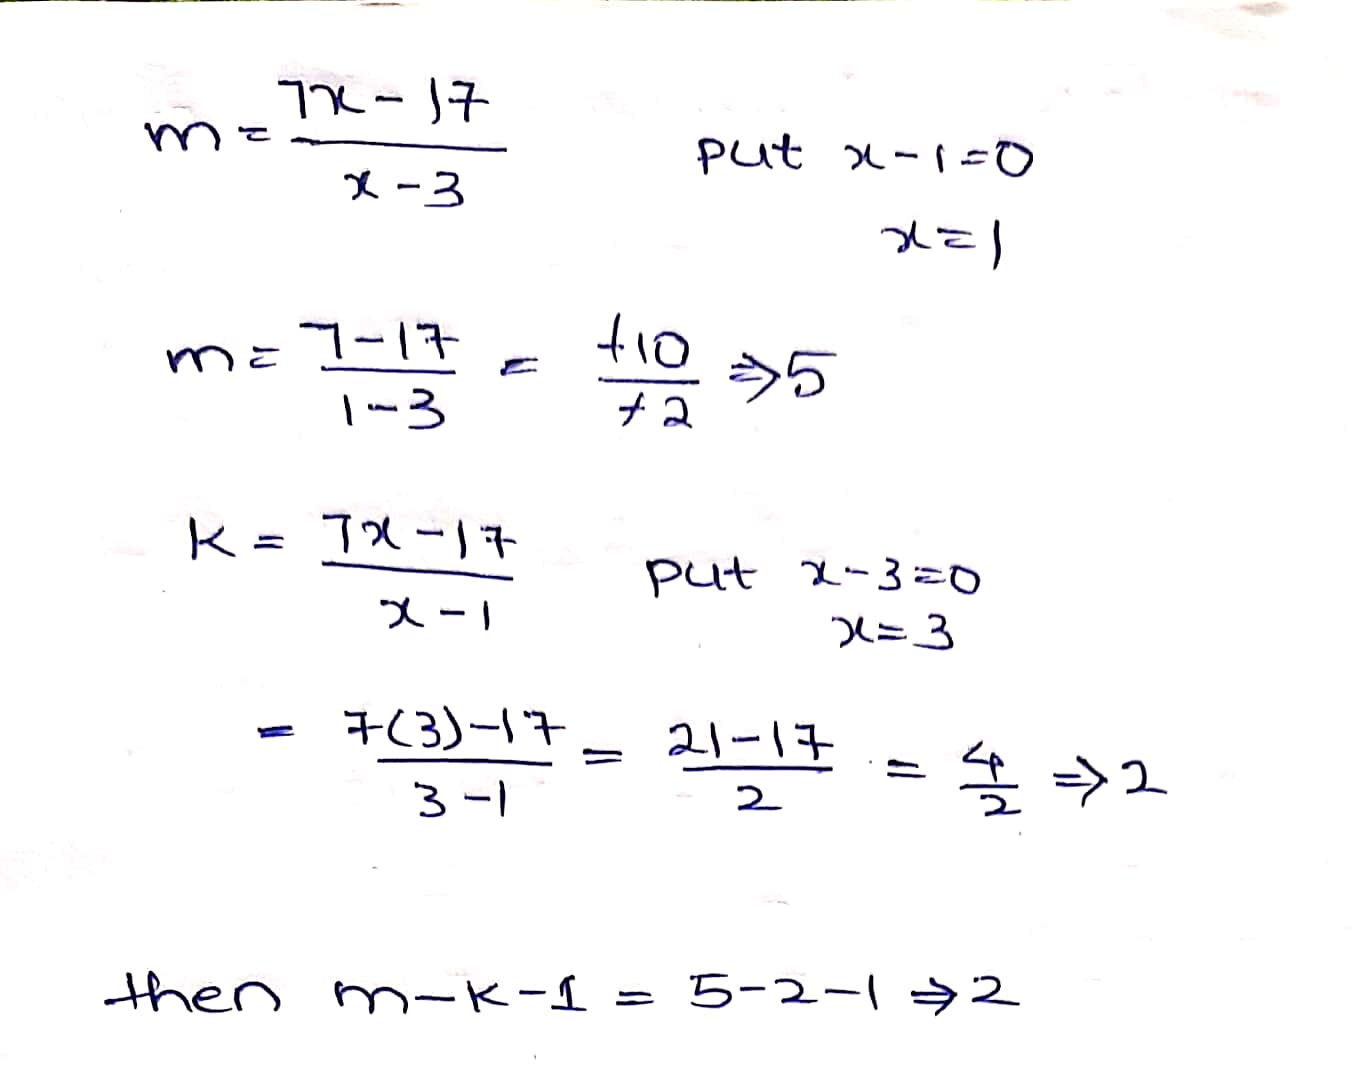 m = 7x - 17 / x - 3
put x - 1 = 0
x = 1
m = 7 - 17 / 1 - 3 = +10 / +2 ⇒ 5
K = 7x - 17 / x - 1
put x - 3 = 0
x = 3
= 7(3) - 17 / 3 - 1 = 21 - 17 / 2 = 4 / 2 ⇒ 2
then m - K - 1 = 5 - 2 - 1 ⇒ 2